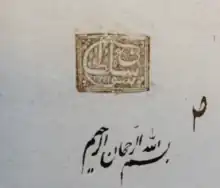 ٢
بسم الله الرحمان الرحیم